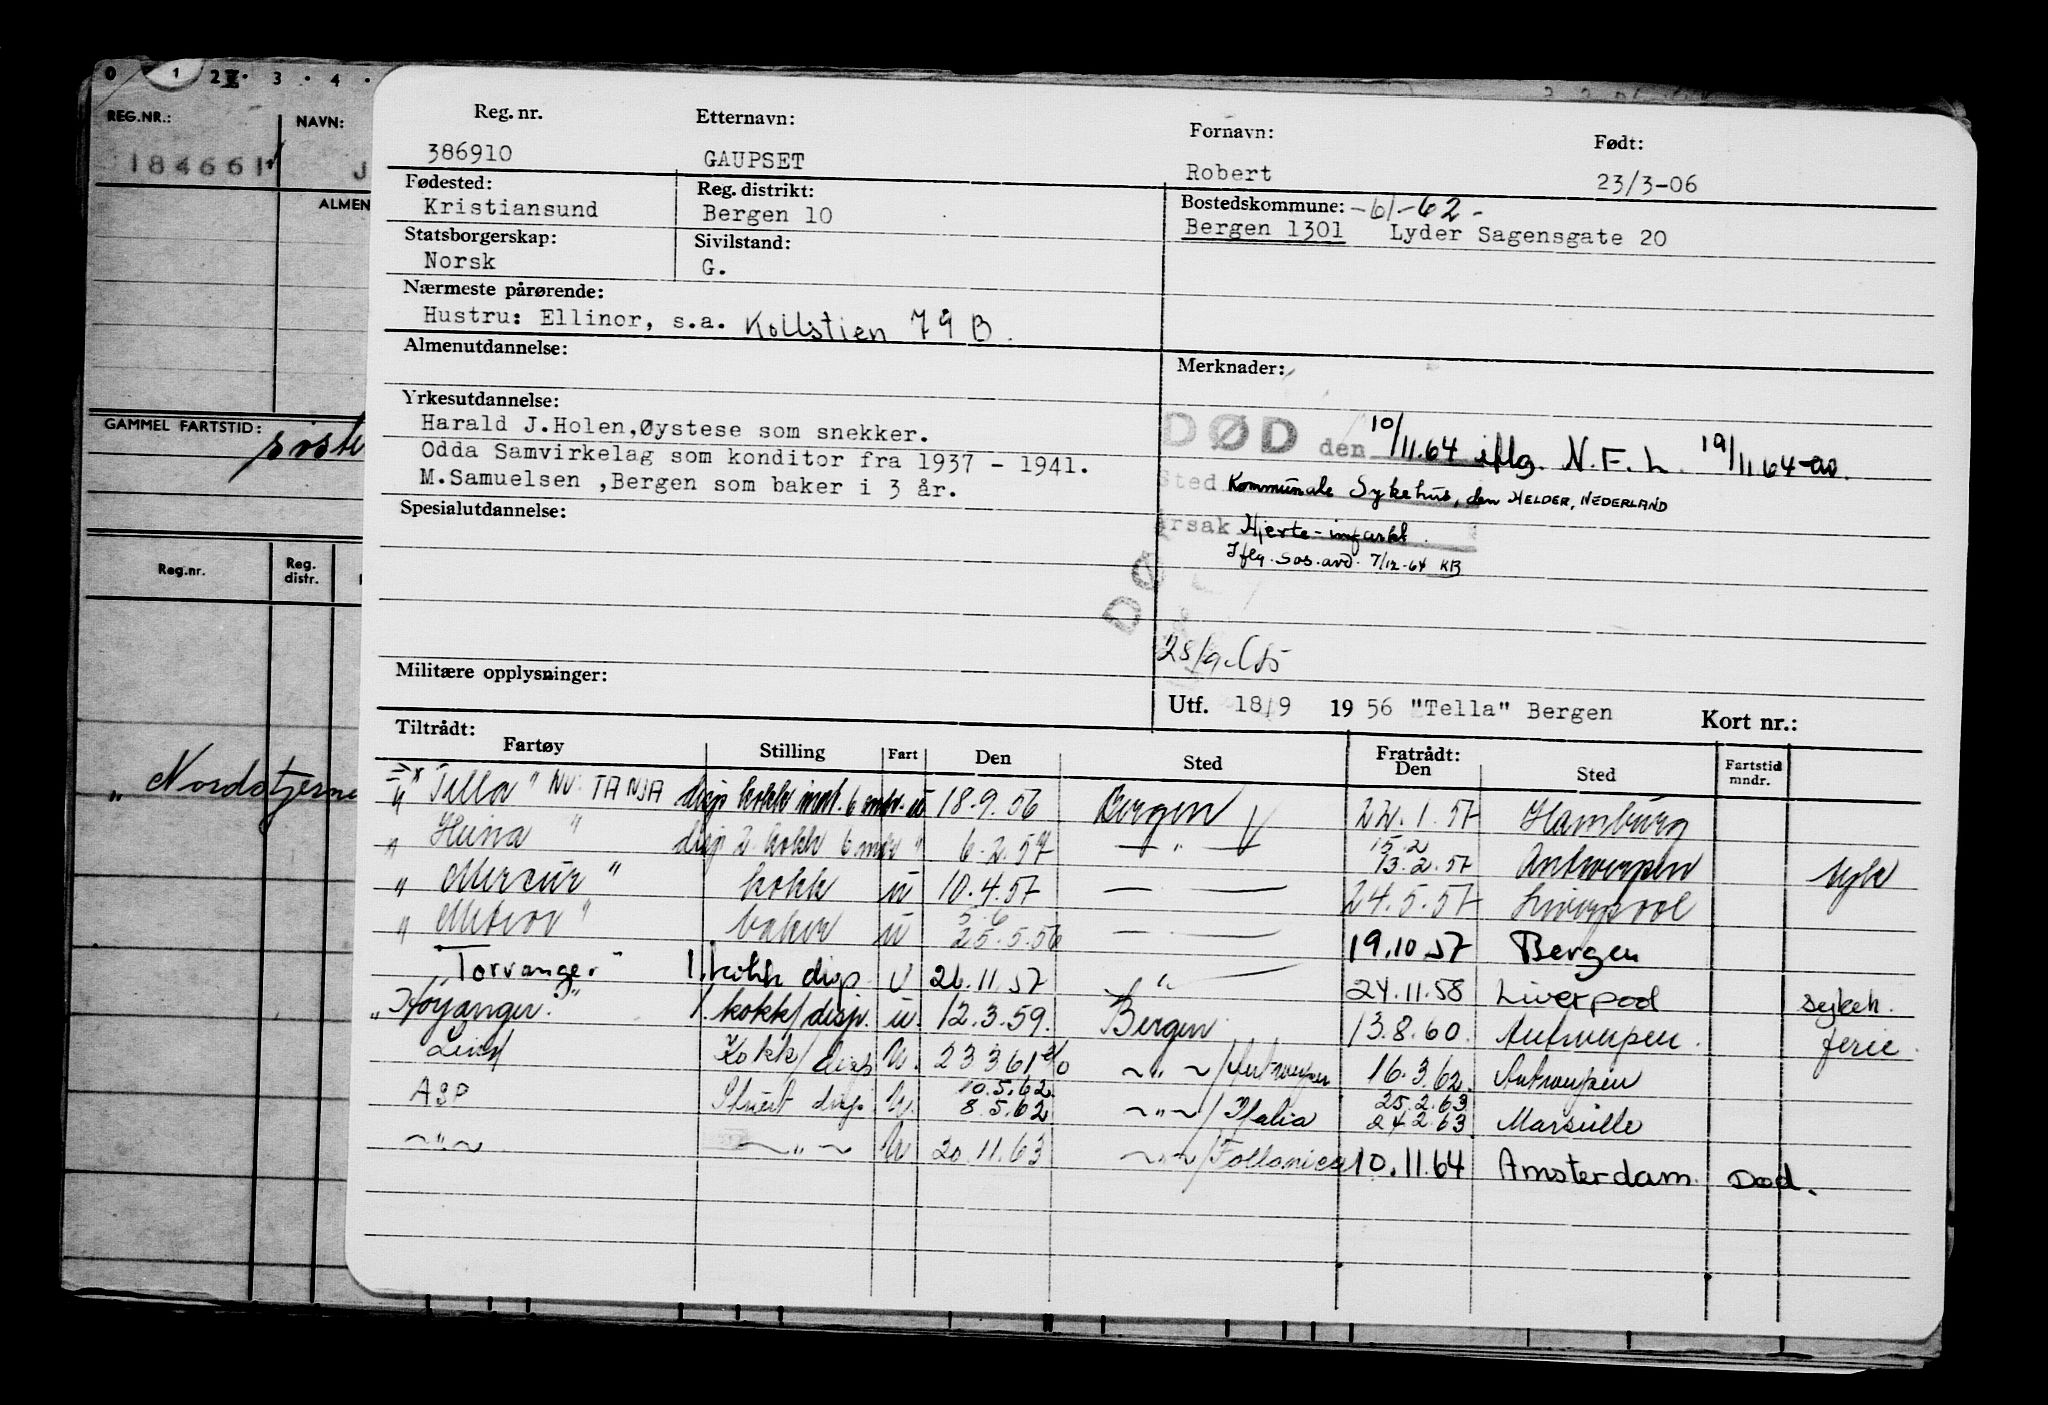 0 1 2 3 . 4 .
REG.NR.: NAVN:
184661 J
ALMEN
GAMMEL FARTSTID:
Reg.nr. Reg. distr.
"Nordstjerne
Reg. nr. Etternavn: Fornavn: Født:
386910 GAUPSET Robert 23/3-06
Fødested: Reg. distrikt: Bostedskommune: -61-62-
Kristiansund Bergen 10 Bergen 1301 Lyder Sagensgate 20
Statsborgerskap: Sivilstand:
Norsk G.
Nærmeste pårørende:
Hustru: Ellinor, s.a. Kollstien 79 B.
Almenutdannelse: Merknader:
Yrkesutdannelse:
Harald J.Holen,Øystese som snekker.
Odda Samvirkelag som konditor fra 1937 - 1941.
M.Samuelsen ,Bergen som baker i 3 år.
DØD den 10/11.64 iflg. N.F.L. 19/11.64
Sted Kommunale Sykehus, den HELDER, NEDERLAND
Spesialutdannelse:
Årsak Hjerte-infarkt.
Iflg. Sos.avd. 7/12-64 KB
DØ
Militære opplysninger:
Utf. 18/9 1956 "Tella" Bergen Kort nr.:
Tiltrådt: Fratrådt:
Fartøy Stilling Fart Den Sted Den Sted Fartstid mndr.
"Tella" NV: TANJA disp kokk innt. 6 mdr. u 18.9.56 Bergen 22.1.57 Hamburg
" Heina " disp 2. kokk 6 mdr " 6.2.57 — " — 15.2 13.2.57 Antwerpen syk
" Mercur " kokk u 10.4.57 — — 24.5.57 Liverpool
" Meteor " baker u 5.6 25.5.56 — — 19.10.57 Bergen
"Torvanger" 1. kokk disp u 26.11.57 " 24.11.58 Liverpool sykeh.
"Høyanger" 1. kokk/disp. u. 12.3.59. Bergen 13.8.60. Antwerpen. ferie.
Lind Kokk/disp u. 23 3 61 ~"~/Antwerpen 16.3.62. Antwerpen
ASP Stuert disp. u. 10.5.62 8.5.62 ~"~/Italia 25.2.63 24.2.63 Marseille
~"~ ~"~ u 20.11.63 ~"~/Follonica 10.11.64 Amsterdam. Død.